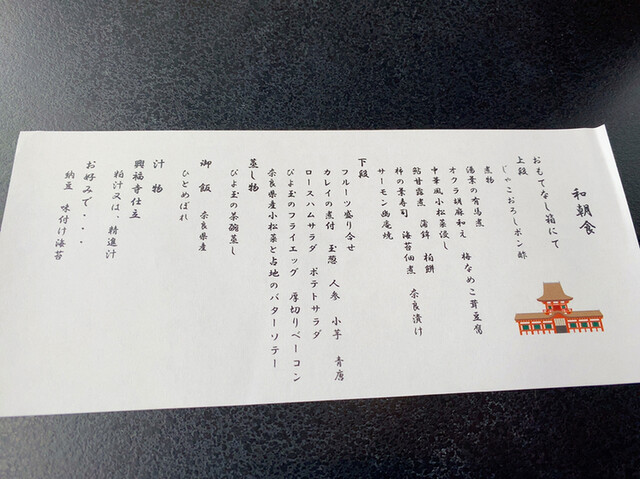 和朝食
おもてなし箱にて
上段
じゃこおろしポン酢
煮物
湯葉の有馬煮
オクラ胡麻和え 梅なめこ茸豆腐
中華風小松菜浸し
鮎甘露煮 蒲鉾 柏餅
柿の葉寿司 海苔佃煮 奈良漬け
サーモン幽庵焼
下段
フルーツ盛り合せ
カレイの煮付 玉葱 人参 小芋 青唐
ロースハムサラダ ポテトサラダ
ぴよ玉のフライエッグ 厚切りベーコン
奈良県産小松菜と占地のバターソテー
蒸し物
ぴよ玉の茶碗蒸し
御飯 奈良県産
ひとめぼれ
汁物
興福寺仕立
粕汁又は、精進汁
お好みで・・・
納豆 味付け海苔